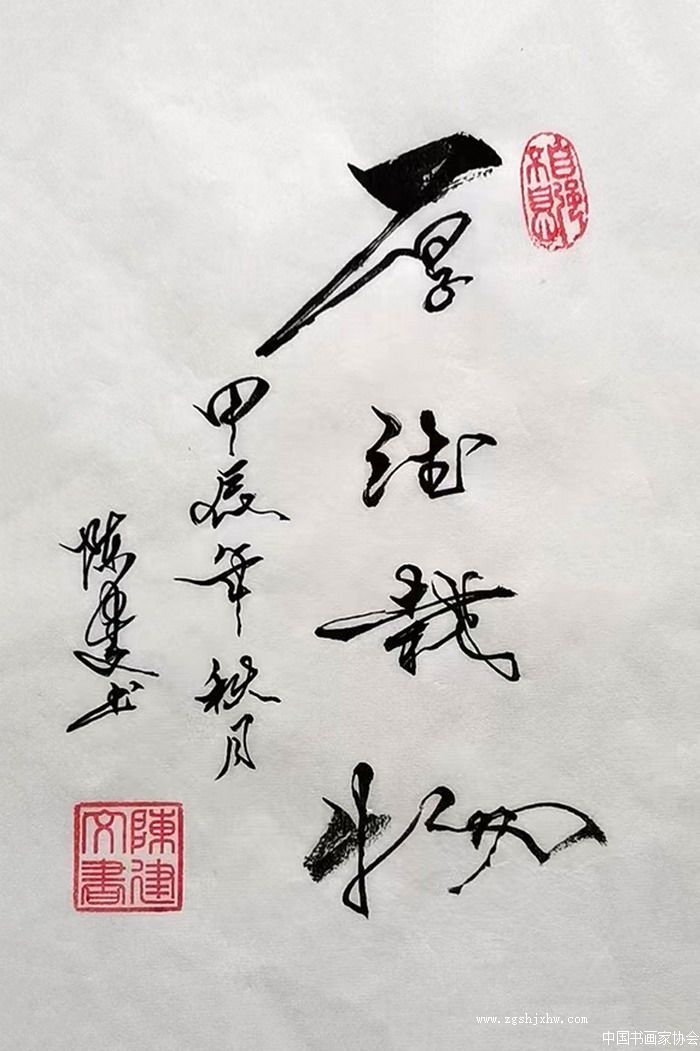 自强不息
厚德载物
甲辰年秋月
陈建文书
陳建文書
www.zgshjxhw.com
中国书画家协会